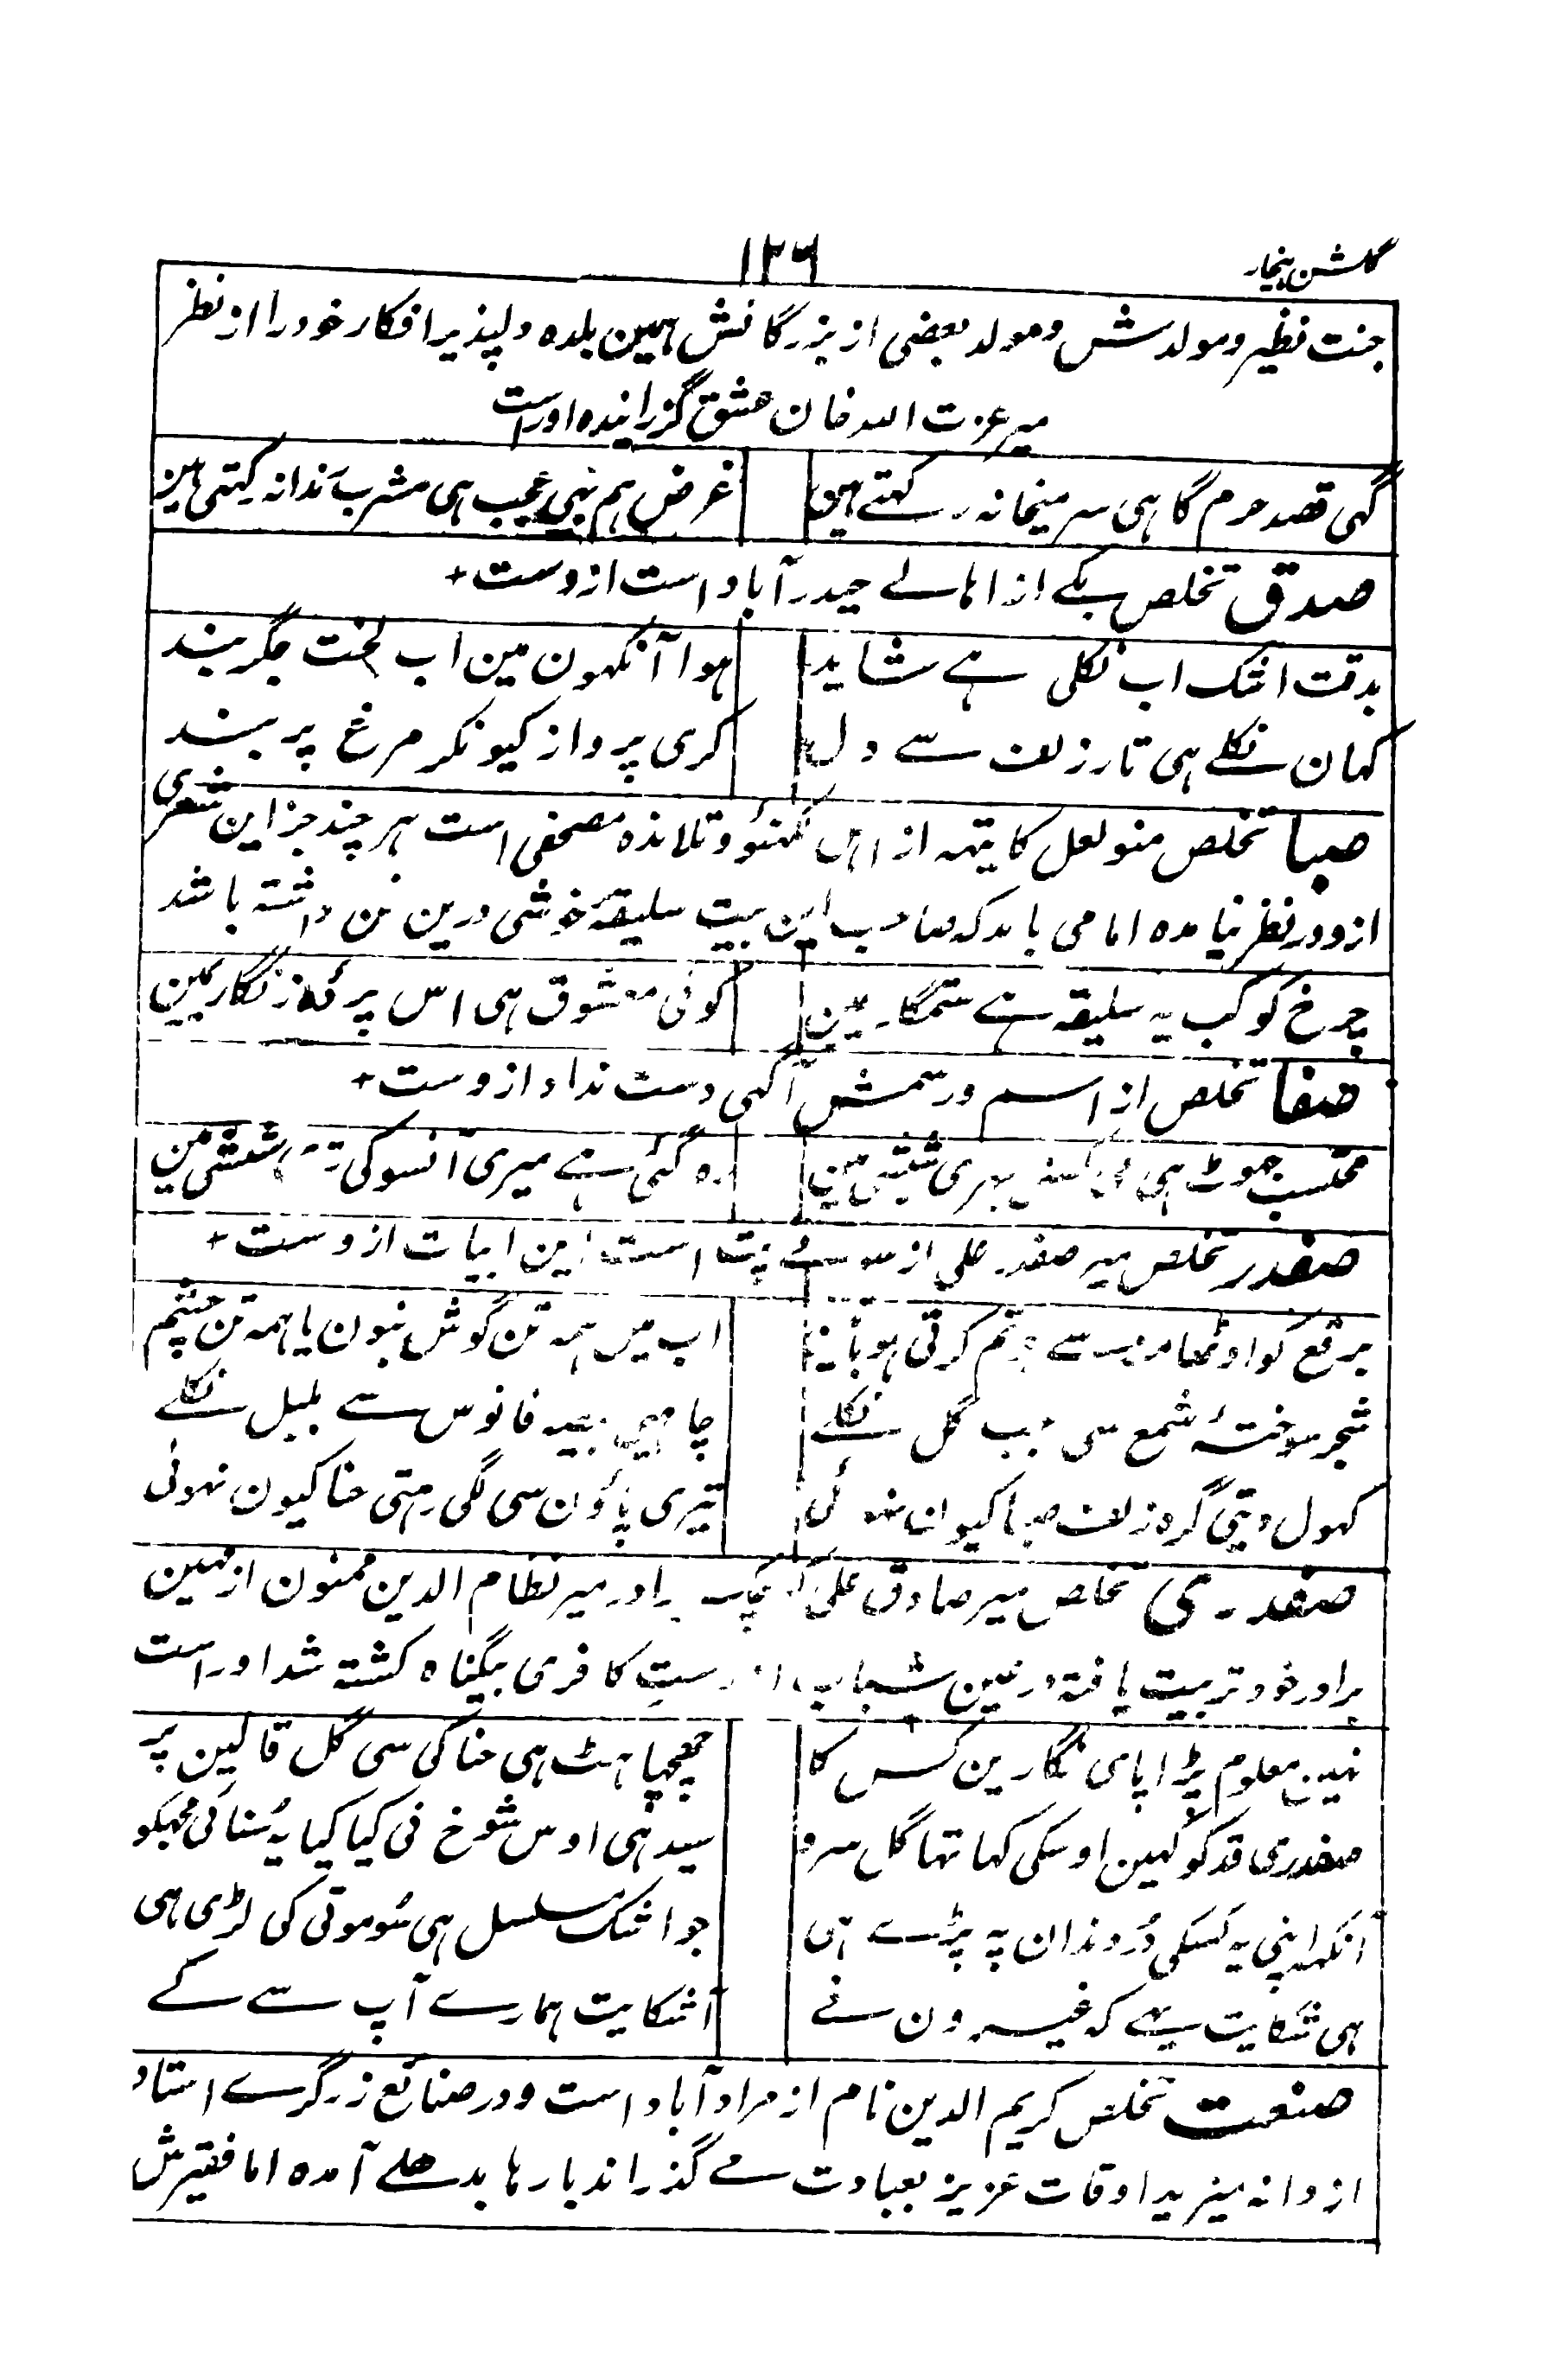 گلشن بیخار
۱۲۶
جنت نظیر و مولدش و مولد بعضی از بزرگانش ہمین بلدہ دلپذیر افکار خود را از نظر
میر عزت اللہ خان عشق گزرانیدہ اوراست
گہی قصد حرم گاہی سر میخانہ رکہتے ہین
غرض ہم بہی عجیب ہی مشرب رندانہ رکہتی ہین
صدق تخلص یکے از اہالے حیدرآباد است ازوست +
بدقت اشک اب نکلی ہے شاید
ہوا آنکہون مین اب لخت جگر بند
کہان نکلے ہی تار زلف سے دل
کری پرواز کیونکر مرغ پر بند
صبا تخلص منو لعل کایتہہ از اہل لکہنؤ و تلامذہ مصحفی است ہر چند جز این شعری
ازو در نظر نیامدہ اما می باید کہ صاحب این بیت سلیقۂ خوشی درین فن داشتہ باشد
چرخ کو کب یہ سلیقہ ہے ستمگاری مین
کوئی معشوق ہی اس پردۂ زنگاری مین
صفا تخلص از اسم و رسمش آگہی دست نداد ازوست +
محتسب جھوٹ ہی بہری شیشی مین
رہ گئی ہے میری آنسو کی شیشی مین
صفدر تخلص میر صفدر علی از سونے پت است این ابیات ازوست +
برقع کو اوٹھا مونہہ سے جو تم کرتی ہو باتین
اب میں ہمہ تن گوش بنون یا ہمہ تن چشم
شجر سوختۂ شمع سی جب گل نکلے
چاہیے بیضہ فانوس سے بلبل نکلے
کہول دیتی گرہ زلف صبا کیون نہوئی
تیری پاؤن سی لگی رہتی حنا کیون نہوئی
صفدری تخلص میر صادق علی برادر میر نظام الدین ممنون از ہمین
برادر خود تربیت یافتہ در عین شباب از دست کافری بیگناہ کشتہ شد اوراست
نہین معلوم پڑا پای نگارین کس کا
چھچھاہٹ ہی حنا کی سی گل قالین پر
صفدری قد کو کہین اوسکی کہا تہا گل سرو
سیدہی اوس شوخ نی کیا کیا یہ سنائی مجہکو
آنکہہ اپنی یہ کسکی در دندان پہ پڑے ہی
جو اشک مسلسل ہی سو موتی کی لڑی ہی
ہی شکایت یہے کہ غیرون نے
آشکایت ہمارے آپ سے کے
صنعت تخلص کریم الدین نام از مرادآباد است و در صنائع زرگرے استاد
از دانہ میزید اوقات عزیز بعبادت مے گذراند بارہا بدہلے آمدہ اما فقیرش